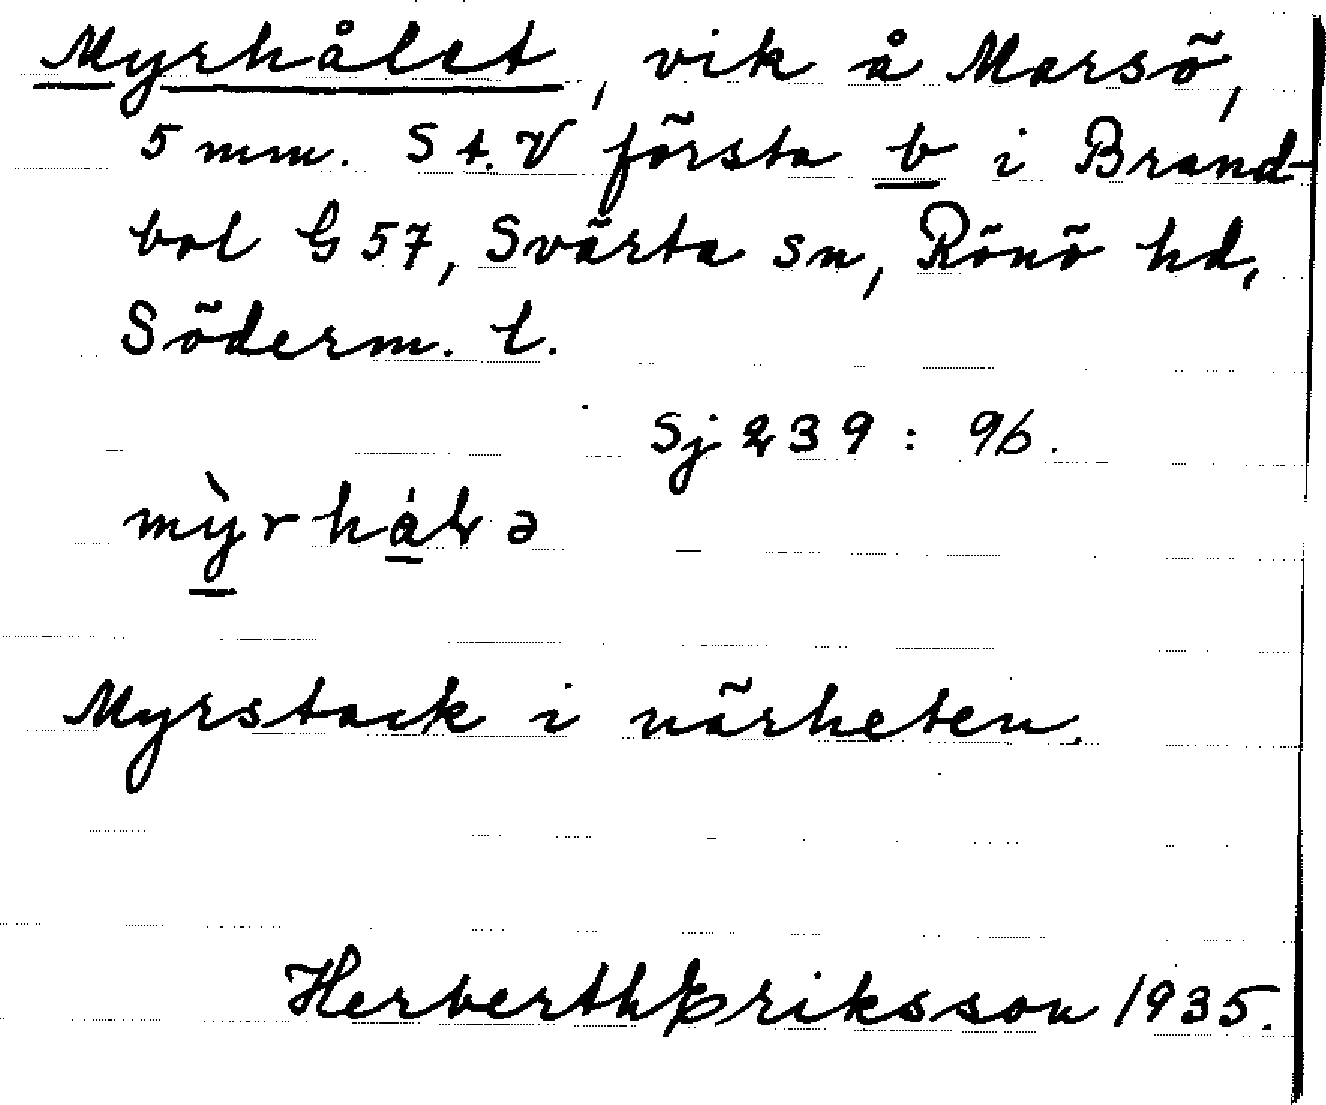 Myrhålet, vik å Marsö,
5 mm. St. V första b i Brand-
bol G 57, Svärta sn, Rönö hd,
Söderm. l.
Sj 239 : 96.
mỳrhålə
Myrstack i närheten.
Herberth Eriksson 1935.